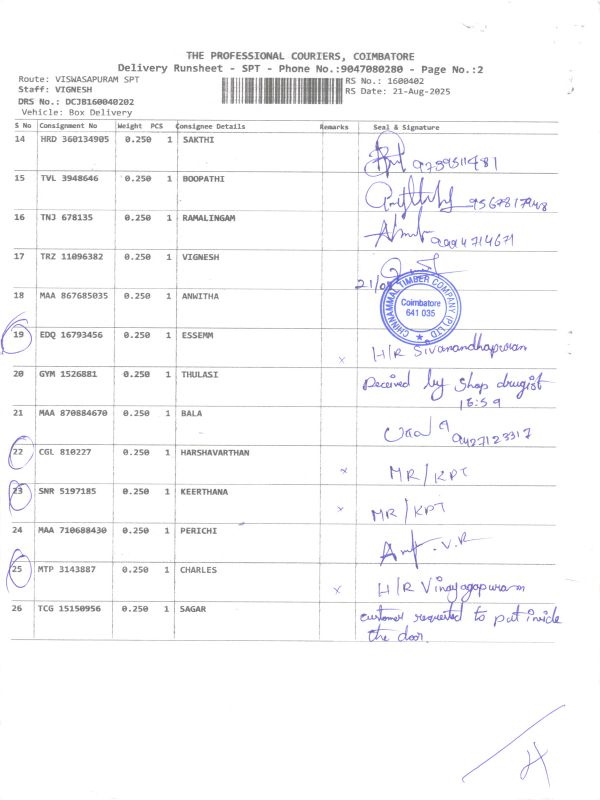 THE PROFESSIONAL COURIERS, COIMBATORE
Delivery Runsheet - SPT - Phone No.:9047080280 - Page No.:2
Route: VISWASAPURAM SPT
RS No.: 1600402
Staff: VIGNESH
RS Date: 21-Aug-2025
DRS No.: DCJB160040202
Vehicle: Box Delivery
S No Consignment No Weight PCS Consignee Details Remarks Seal & Signature
14 HRD 360134905 0.250 1 SAKTHI
15 TVL 3948646 0.250 1 BOOPATHI
9567817948
16 TNJ 678135 0.250 1 RAMALINGAM
9994714671
17 TRZ 11096382 0.250 1 VIGNESH
18 MAA 867685035 0.250 1 ANWITHA
CHINNAMMAL TIMBER COMPANY (P) LTD.
Coimbatore
641 035
19 EDQ 16793456 0.250 1 ESSEMM x H/R Sivanandhapuram
20 GYM 1526881 0.250 1 THULASI Received by shop drugist
16:59
21 MAA 870884670 0.250 1 BALA
9427123317
22 CGL 810227 0.250 1 HARSHAVARTHAN x MR/KPT
23 SNR 5197185 0.250 1 KEERTHANA x MR/KPT
24 MAA 710688430 0.250 1 PERICHI
25 MTP 3143887 0.250 1 CHARLES x H/R Vinayagapuram
26 TCG 15150956 0.250 1 SAGAR customer requested to put inside
the door.